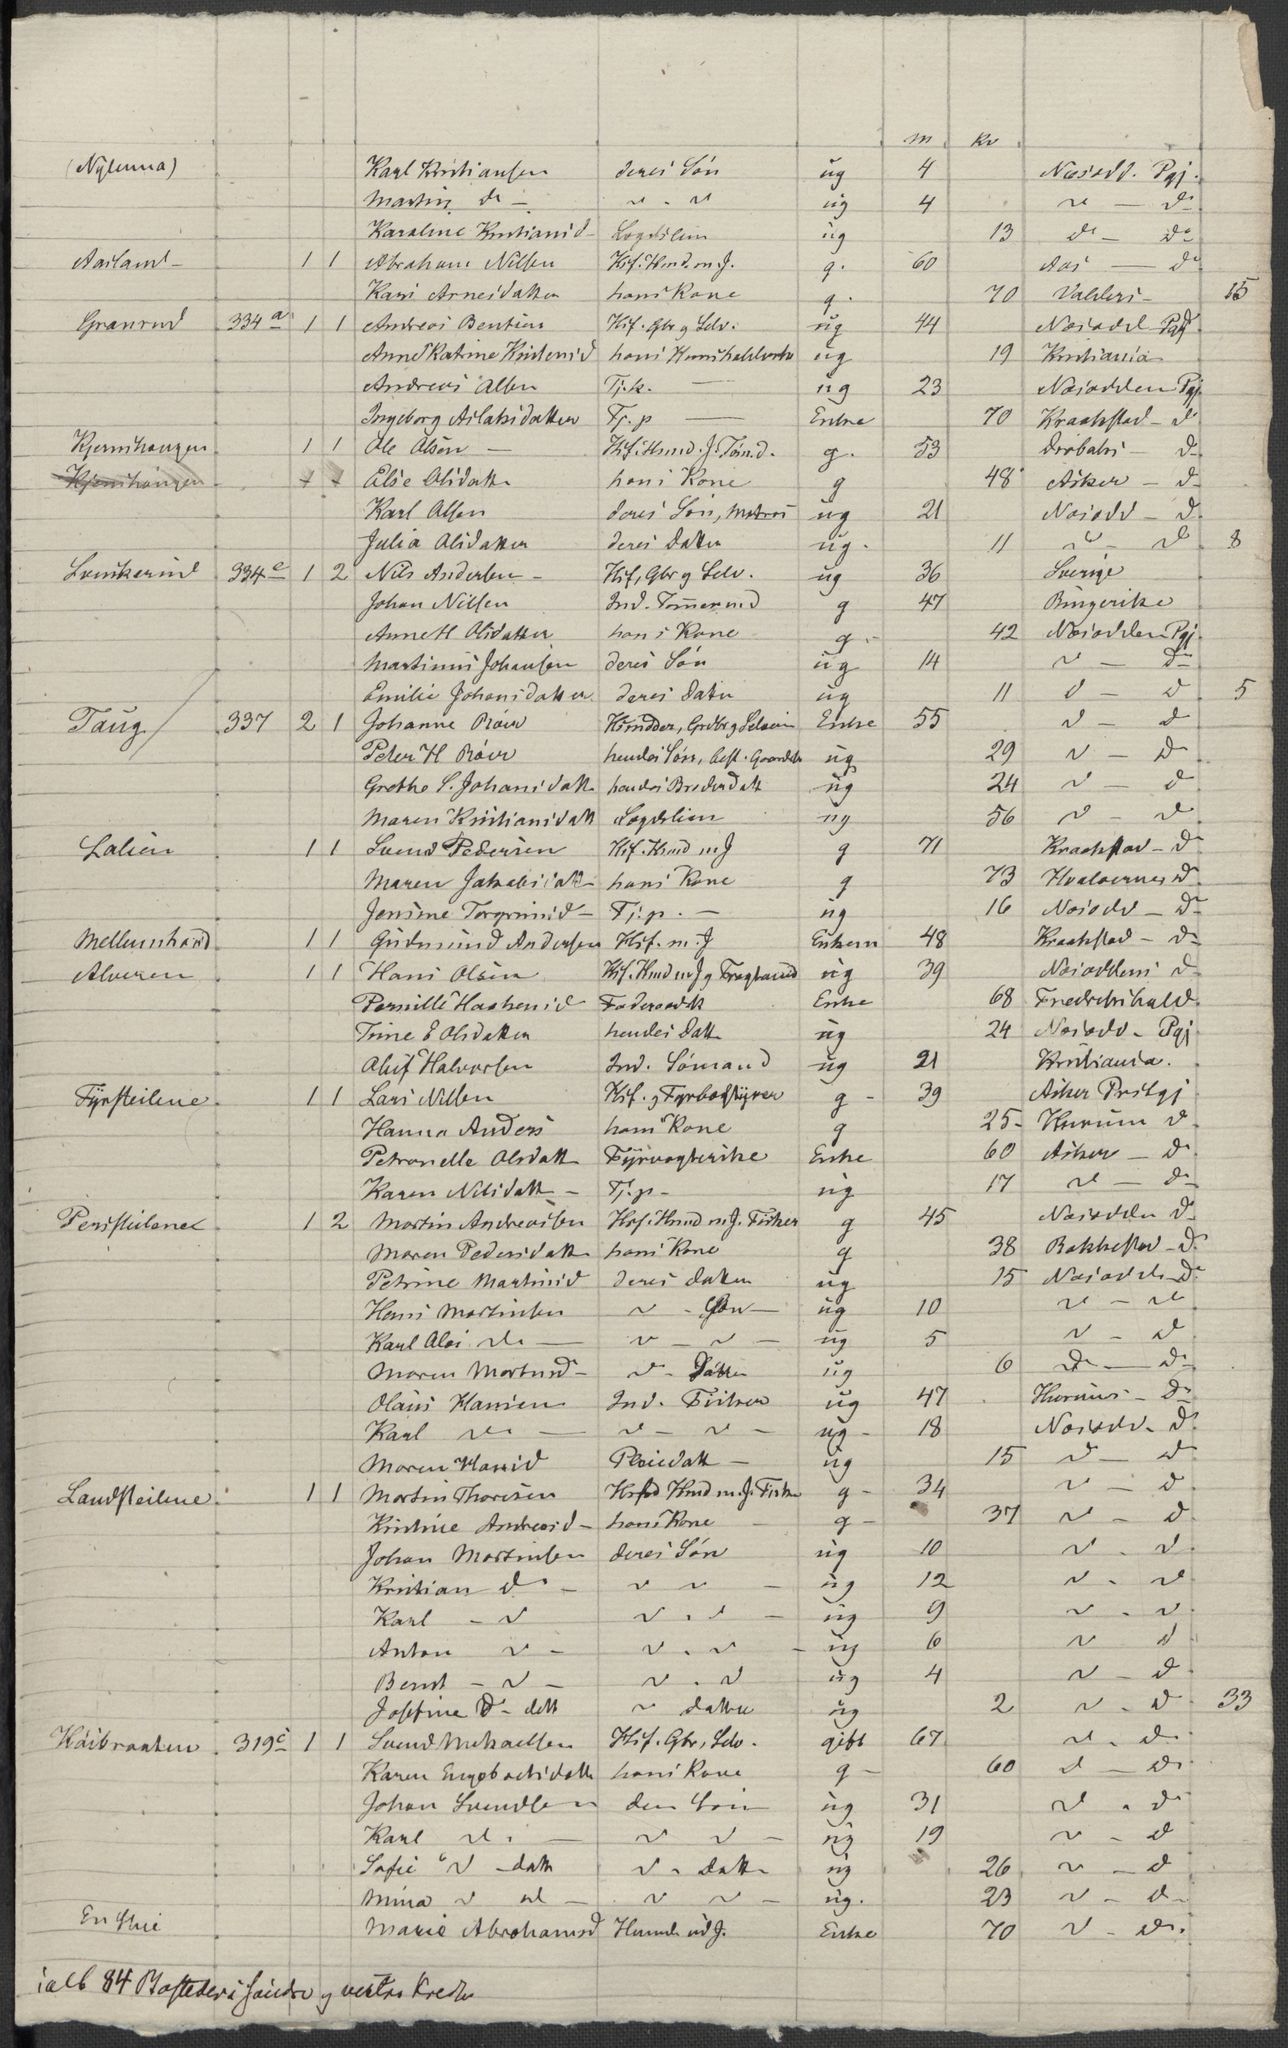 m. Kv
(Nylenna) Karl Kristiansen deres Søn ug 4 Næsodd. Pgj.
Martin do - " - " ug 4 " - do
Karoline Kristiansd - Logdslem ug 13 do - do
Aasland - 1 1 Abraham Nilsen Hsf. Hmd. m. J. g. 60 Aas - do
Kari Arnesdatter hans Kone g. 70 Valders - 15
Granrud 334 a 1 1 Andreas Bentsen Hsf. Gbr og Selv. ug 44 Næsodd Pgj
Anne Katrine Kristensd hans Huusholderske ug 19 Kristiania
Andreas Olsen Tj.k. - ug 23 Næsodden Pgj.
Ingeborg Aslaksdatter Tj. p - Enke 70 Kraakstad - d
Kjernshaugen 1 1 Ole Olsen - Hsf. Hmd. J. Tømd. g. 53 Drøbaks - d
Kjernshaugen Else Olsdatter hans Kone g 48 Asker - d
Karl Olsen deres Søn, Matros ug 21 Næsodd - d.
Julia Olsdatter deres Datter ug. 11 " - d 8
Svenkerud 334 c 1 2 Nils Andersen - Hsf, Gbr og Selv. ug 36 Sverige
Johan Nilsen Ind. Tømmermd g 47 Ringerike
Anne H Olsdatter hans Kone g - 42 Næsodden Pgj
Martinius Johansen deres Søn ug 14 " - do
Emilie Johansdatter deres Datter ug 11 d - d 5
Taug 337 2 1 Johanne Røer Hmdder, Grdbr og Selveier Enke 55 " - d
Peter H Røer hendes Søn, best. Gaarden ug 29 " - do
Grethe S. Johansdatt hendes Broderdatt ug 24 " - d
Maren Kristiansdatt Logdslem ug 56 " - d
Lalien 1 1 Svend Pedersen Hsf. Hmd m J g 71 Kraakstad - do
Maren Jakobsdatt - hans Kone g 73 Hvaløernes d
Jensine Torgrimsd - Tj. p. - ug 16 Næsodd - do
Mellemstrand 1 1 Gudmund Andersen Hsf. m. J Enkem 48 Kraakstad - do
Alveren 1 1 Hans Olsen Hsf. Hmd m J og Fragtmand ug 39 Næsoddens d
Pernille Haakensd Føderaadsk Enke 68 Fredrikshald.
Trine E Olsdatter hendes Datt ug 24 Næsodd - Pgj
Oluf Halvorsen Ind. Sømand ug 21 Kristiania.
Fyrsteilene 1 1 Lars Nilsen Hsf. og Fyrbestyrer g - 39 Asker Prstgj
Hanna Anders hans Kone g 25 - Hurum d.
Petronelle Olsdatt Fyrvogterske Enke 60 Asker - do
Karen Nilsdatt - Tj. p - ug 17 " - d
Persteilene 1 2 Martin Andreasen Hsf. Hmd m. J. Fisker g 45 Næsodden d
Maren Pedersdatt hans Kone g 38 Bakkestad - d
Petrine Martinsd deres Datter ug 15 Næsodden d
Hans Martinsen " - Søn - ug 10 " - "
Karl Alos do - " - " - ug 5 " - d
Maren Martinsd - " - Datter ug 6 do - do
Olaus Hansen Ind. Fisker ug 47 Hurums - do
Karl do - " - " - ug - 18 Næsodd - d.
Maren Hansd Pleiedatt - ug 15 d - d
Landsteilene 1 1 Martin Thoresen Hsfd Hmd m. J. Fisker g - 34 " - d
Kristine Andreasd - hans Kone g - 37 " - d
Johan Martinsen deres Søn ug 10 " - d
Kristian do - " " - ug 12 " - d
Karl - " " . d - ug 9 " - "
Anton " - " . " - ug 6 " d
Bernt - " - " . d ug 4 " - d
Josefine do - datt " datter ug 2 " - d 33
Høibraaten 319 c 1 1 Svend Mikaelsen Hsf. Gbr, Selv. gift 67 " - do
Karen Engebretsdatter hans Kone g - 60 d - do
Johan Svendsen deres Søn ug 31 " - do
Karl do - " " - ug 19 " - d
Sofie " - datt " - Datt - ug 26 " - d
Mina " d - " " - ug. 23 " - d -
Marie Abrahamsd Enke 70 " - do.
ialt 84 Bosteder i søndre og vestre Kreds